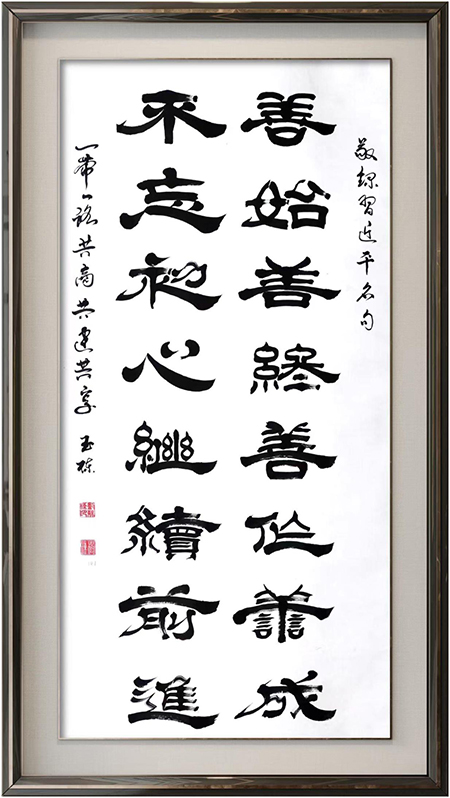 敬録習近平名句
善始善終善作譱成
不忘初心繼續前進
一带一路共商共建共享 玉栋